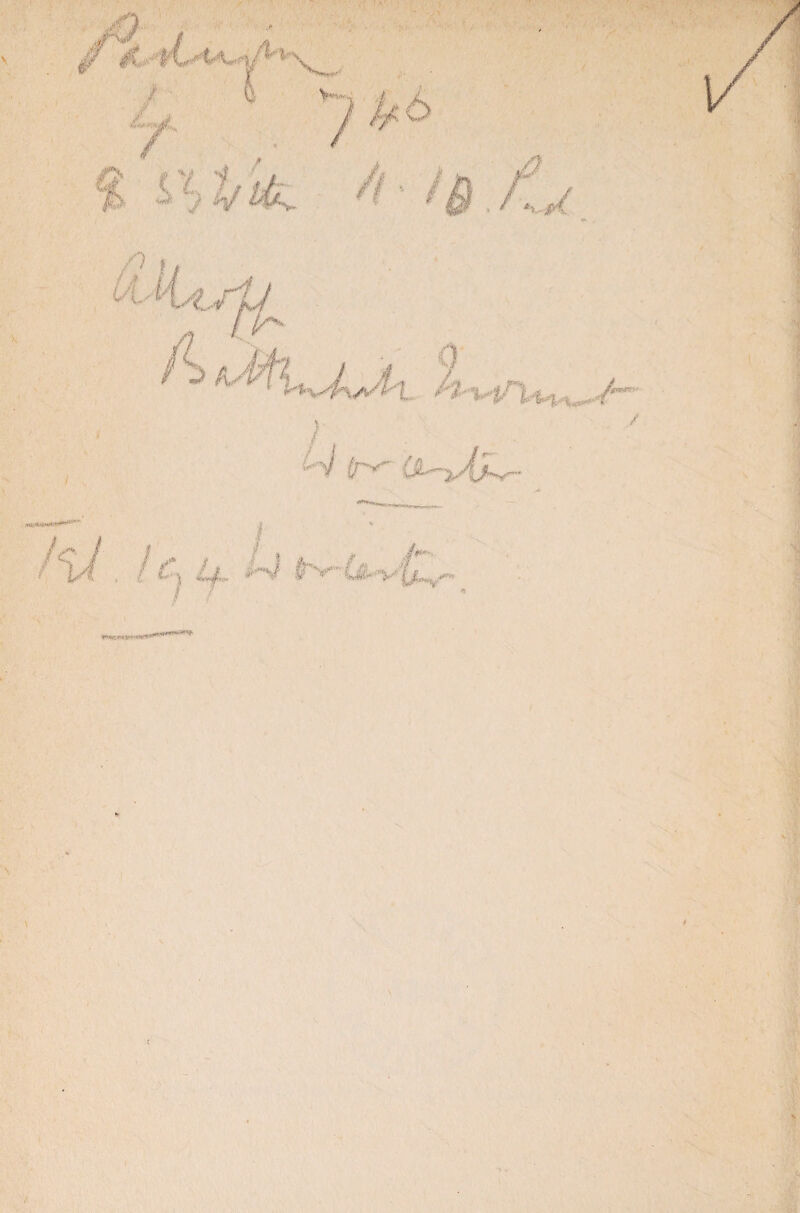 Padington
4 7 40
8 55 Wor 11.10 Pad.
Allsopp
Battenhall Mount,
Worcester
Tel. 194 Worcester.